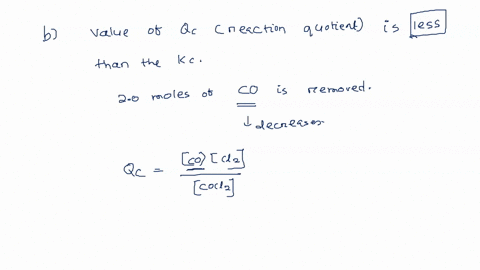 b) value of Qc (reaction quotient) is less
than the Kc.
2.0 moles of CO is removed.
↓ decreases
Qc = [CO][Cl2] / [COCl2]